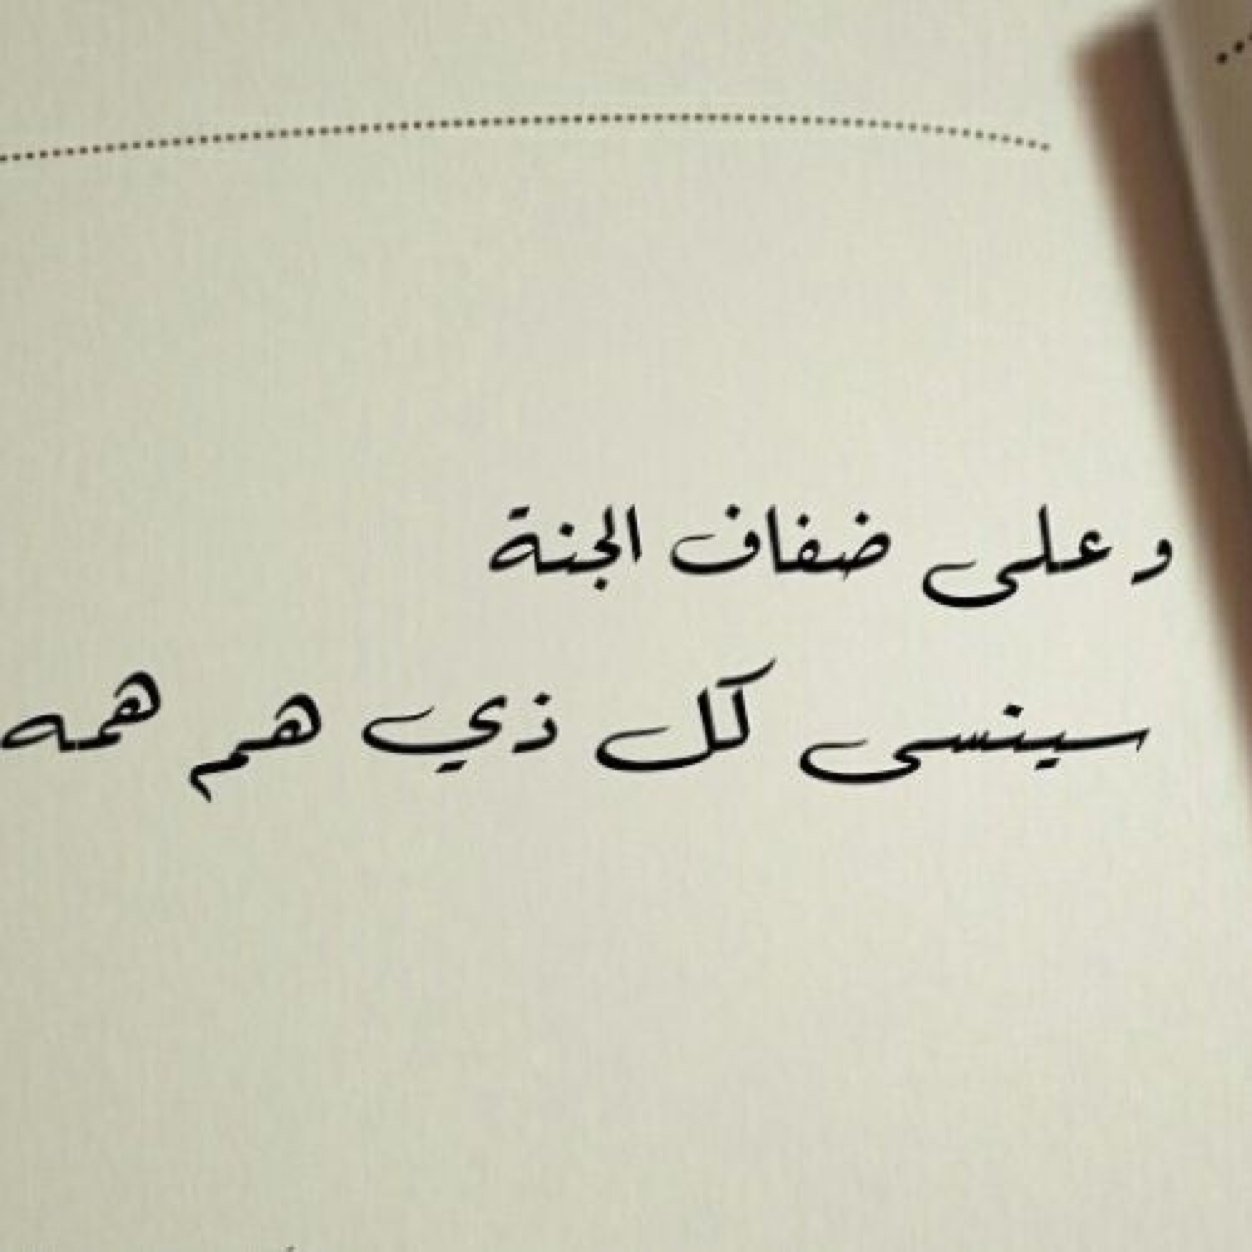 و على ضفاف الجنة
سينسى كل ذي هم همه